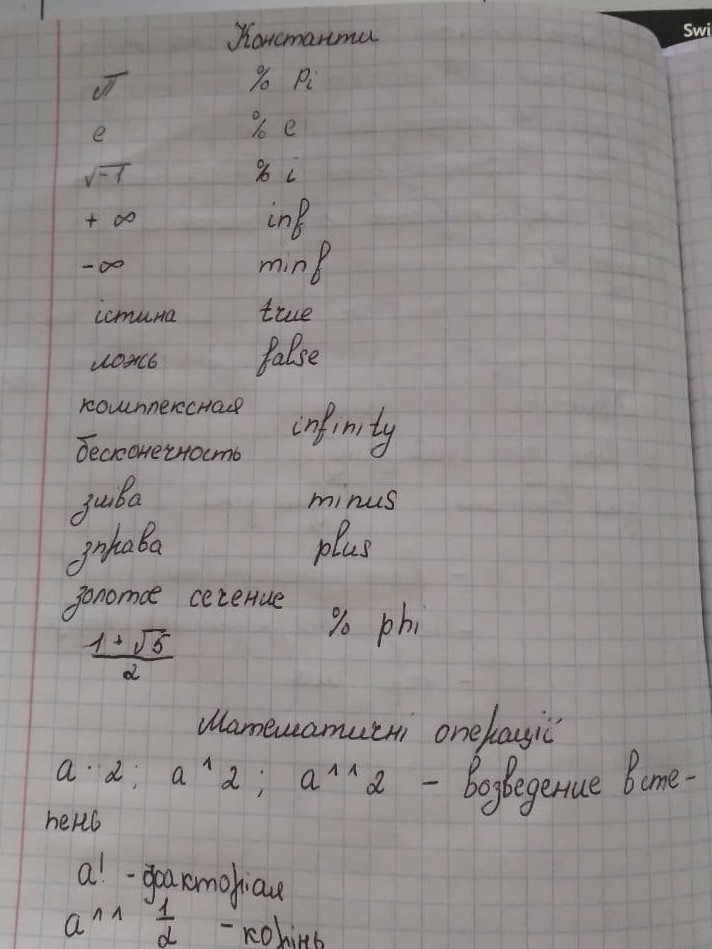 Swi
Константи
π % Pi
e % e
√-1 % i
+ ∞ inf
-∞ minf
істина true
ложь false
комплексная
infinity
бесконечность
зліва minus
зправа plus
золотое сечение
% phi
(1+√5)/2
Математичні операції
a · 2; a ^ 2; a ^^ 2 - возведение в сте-
пень
a! - факторіал
a ^^ 1/2 - корінь